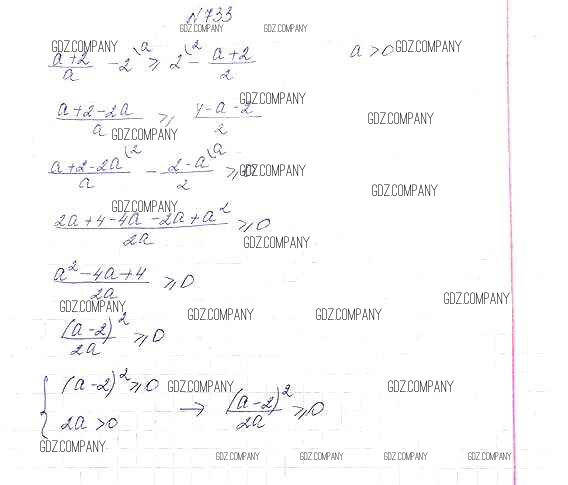 N 733
GDZ.COMPANY GDZ.COMPANY
GDZ.COMPANY GDZ.COMPANY
(a+2)/a - 2 \a ≥ 2 \2 - (a+2)/2 a > 0
GDZ.COMPANY
(a+2-2a)/a ≥ (4-a-2)/2
GDZ.COMPANY GDZ.COMPANY
(a+2-2a)/a \2 - (2-a)/2 \a ≥ 0
GDZ.COMPANY
GDZ.COMPANY
GDZ.COMPANY
(2a+4-4a-2a+a²)/2a ≥ 0
GDZ.COMPANY
(a²-4a+4)/2a ≥ 0
GDZ.COMPANY
GDZ.COMPANY GDZ.COMPANY GDZ.COMPANY
(a-2)²/2a ≥ 0
{ (a-2)² ≥ 0
2a > 0 → (a-2)²/2a ≥ 0
GDZ.COMPANY GDZ.COMPANY
GDZ.COMPANY
GDZ.COMPANY GDZ.COMPANY GDZ.COMPANY GDZ.COMPANY